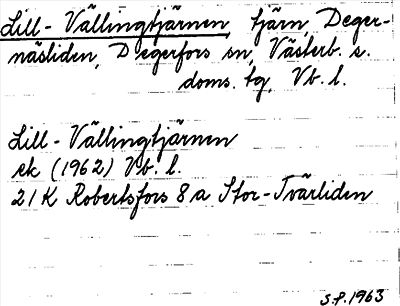 Lill-Vällingtjärnen, tjärn, Deger-
näsliden, Degerfors sn, Västerb. s.
doms. tg, Vb. l.
Lill-Vällingtjärnen
ek (1962) Vb. l.
21K Robertsfors 8a Stor-Tvärliden
S.P. 1963